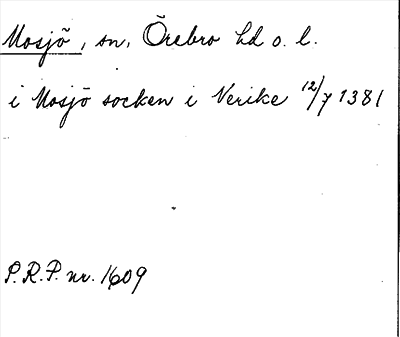 Mosjö, sn, Örebro hd o. l.
i Mosjö socken i Nerike 12/7 1381
P.R.P. nr. 1609